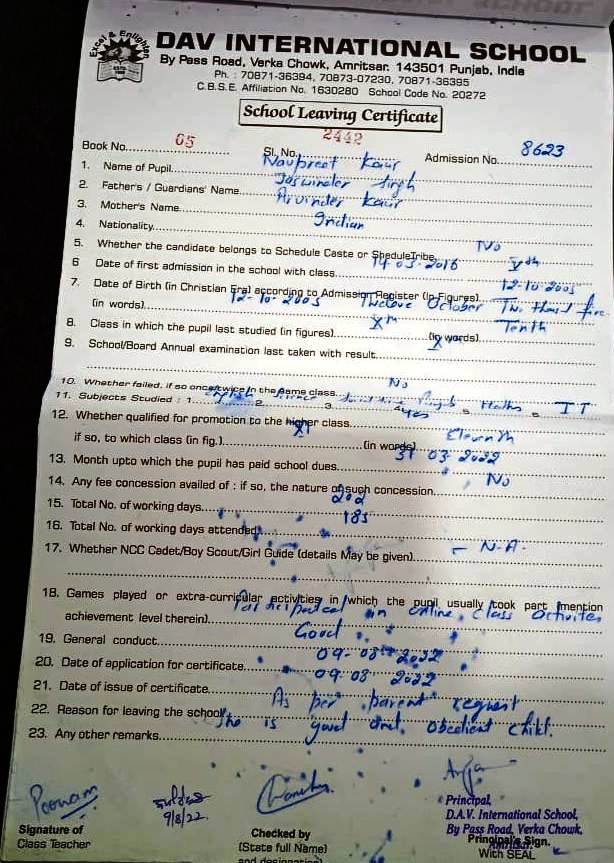 Excel & Enlighten
DAV INTERNATIONAL SCHOOL
By Pass Road, Verka Chowk, Amritsar. 143501 Punjab, India
Ph. : 70871-36394, 70873-07230, 70871-36395
C.B.S.E. Affiliation No. 1630280 School Code No. 20272
School Leaving Certificate
Book No. 05 Sl. No. 2442 Admission No. 8623
1. Name of Pupil Navpreet Kaur
2. Father's / Guardians' Name Jaswinder Singh
3. Mother's Name Arvinder Kaur
4. Nationality Indian
5. Whether the candidate belongs to Schedule Caste or SheduleTribe No
6 Date of first admission in the school with class 14-03-2016 Vth
7. Date of Birth (in Christian Era) according to Admission Register (In Figures) 12-10-2005
(in words) 12-10-2005 Twelove October Two thousand five
8. Class in which the pupil last studied (in figures) Xth (in words) Tenth
9. School/Board Annual examination last taken with result X
10. Whether failed, if so once/twice in the same class No
11. Subjects Studied : 1 English 2 Science 3 4 5 Maths 6 IT
12. Whether qualified for promotion to the higher class yes
if so, to which class (in fig.) XI (in words) Eleventh
13. Month upto which the pupil has paid school dues 31-03-2022
14. Any fee concession availed of : if so, the nature of such concession No
15. Total No. of working days 202
16. Total No. of working days attended 185
17. Whether NCC Cadet/Boy Scout/Girl Guide (details May be given) - N.A.
18. Games played or extra-curricular activities in which the pupil usually took part (mention
achievement level therein) Participated in online class activites
19. General conduct Good
20. Date of application for certificate 09-08-2022
21. Date of issue of certificate 09-08-2022
22. Reason for leaving the school As per parent request
23. Any other remarks She is good and obedient child.
Poonam
9/8/22
Signature of
Class Teacher
Checked by
(State full Name)
and designation)
Principal,
D.A.V. International School,
By Pass Road, Verka Chowk,
Amritsar.
Principal's Sign.
With SEAL